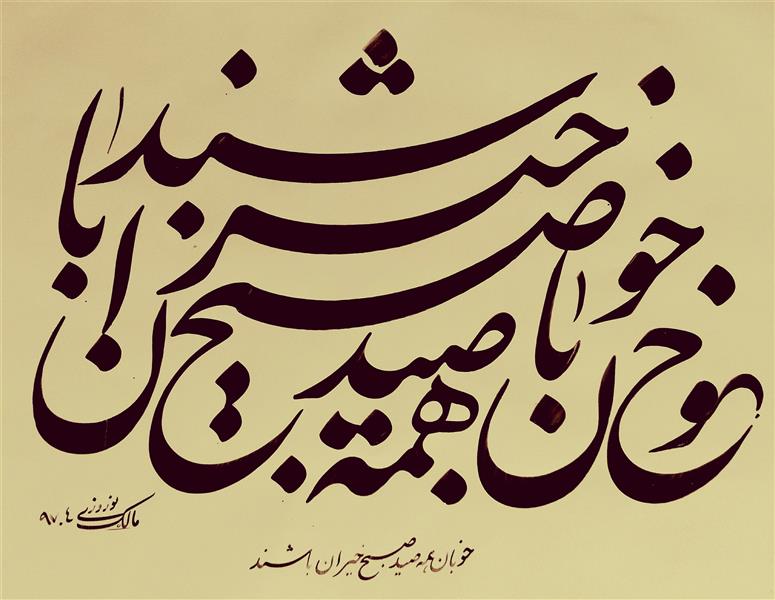 خوبان همه صید صبح خیزان باشند
مالک نوروزی ۹۷.۴
خوبان همه صید صبح خیزان باشند